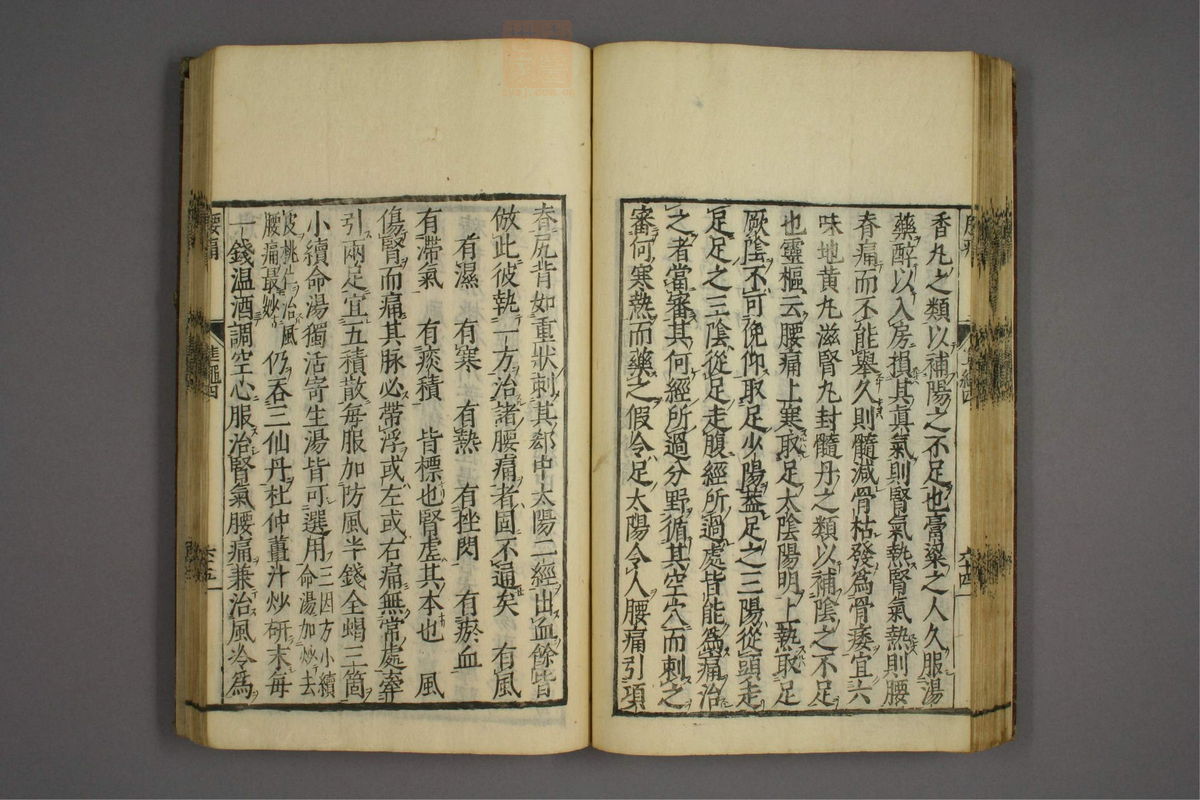 香九之類以補陽之不足也膏粱之人久服湯
藥醉以入房損其眞氣則腎氣熱腎氣熱則腰
脊痛而不能舉久則髓減骨枯發爲骨痿宜六
味地黄丸滋腎丸封髓丹之類以補陰之不足
也靈樞云腰痛上寒取足太陰陽明上熱取足
厥陰不可俛仰取足少陽蓋足之三陽從頭走
足足之三陰從足走腹經所過處皆能爲痛治
之者當審其何經所過分野循其空穴而刺之
審何寒熱而藥之假令足太陽令人腰痛引項
脊尻背如重狀刺其郄中太陽二經出血餘皆
倣此彼執一方治諸腰痛者固不通矣 有風
有濕 有寒 有熱 有挫閃 有瘀血
有滯氣 有痰積 皆標也腎虚其本也 風
傷腎而痛其脉必帶浮或左或右痛無常處牽
引兩足宜五積散每服加防風半錢全蝎三箇
小續命湯獨活寄生湯皆可選用三因方小續命湯加炒去
皮桃仁治風腰痛最妙 仍吞三仙丹杜仲薑汁炒研末每
一錢温酒調空心服治腎氣腰痛兼治風冷爲
腰痛